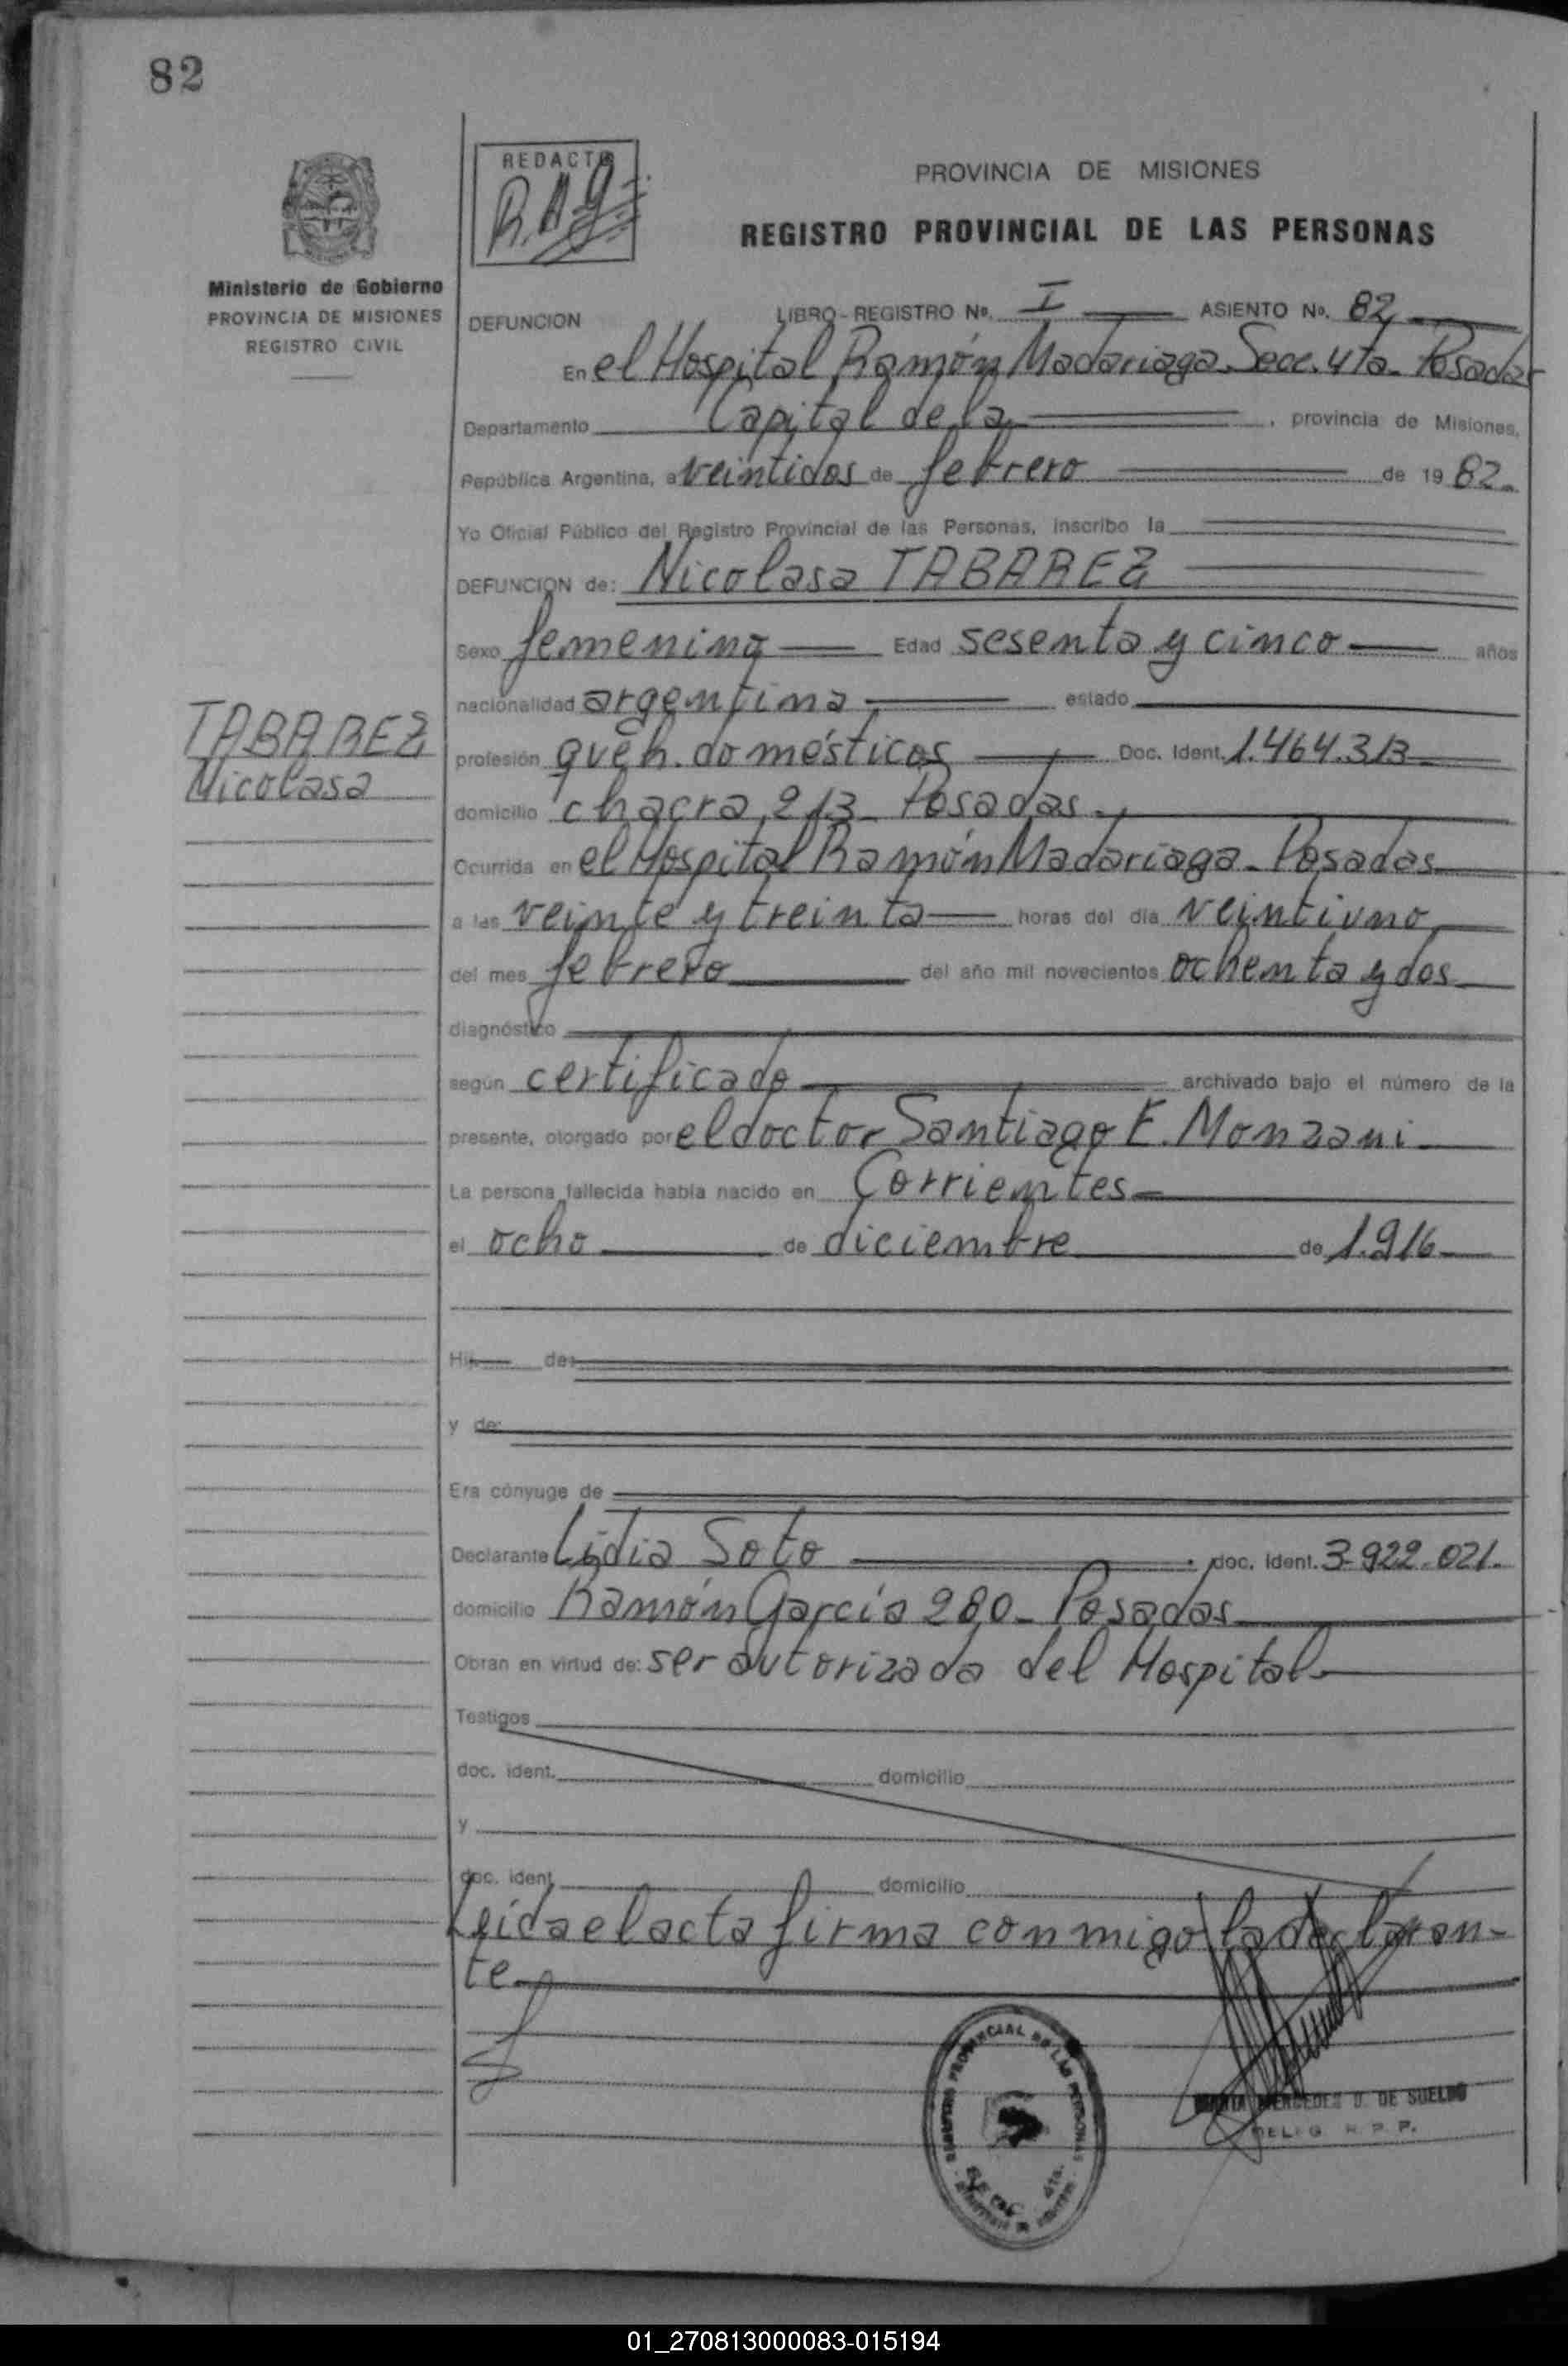 82
REDACTO
PROVINCIA DE MISIONES
REGISTRO PROVINCIAL DE LAS PERSONAS
Ministerio de Gobierno
PROVINCIA DE MISIONES
REGISTRO CIVIL
DEFUNCION LIBRO - REGISTRO Nº. I ASIENTO Nº. 82
En el Hospital Ramón Madariaga. Secc. 4ta. Posadas
Departamento Capital de la , provincia de Misiones,
República Argentina, a veintidos de febrero de 19 82.
Yo Oficial Público del Registro Provincial de las Personas, inscribo la
DEFUNCION de: Nicolasa TABAREZ
Sexo femenino Edad sesenta y cinco años
nacionalidad argentina estado
TABAREZ
Nicolasa
profesión queh. domésticos Doc. Ident. 1.464.313
domicilio chacra 213 - Posadas.
Ocurrida en el Hospital Ramón Madariaga - Posadas
a las veinte y treinta horas del día veintiuno
del mes febrero del año mil novecientos ochenta y dos
diagnóstico
según certificado archivado bajo el número de la
presente, otorgado por el doctor Santiago E. Monzani
La persona fallecida había nacido en Corrientes
el ocho de diciembre de 1.916
Hij de:
y de:
Era cónyuge de
Declarante Lidia Soto . doc. ident. 3.922.021.
domicilio Ramón García 280 - Posadas
Obran en virtud de: ser autorizada del Hospital
Testigos
doc. ident. domicilio
y
doc. ident. domicilio
Leida el acta firma conmigo la declaran-
te
REGISTRO PROVINCIAL DE LAS PERSONAS
MARIA MERCEDES D. DE SUELDO
DELEG R. P. P.
01_270813000083-015194